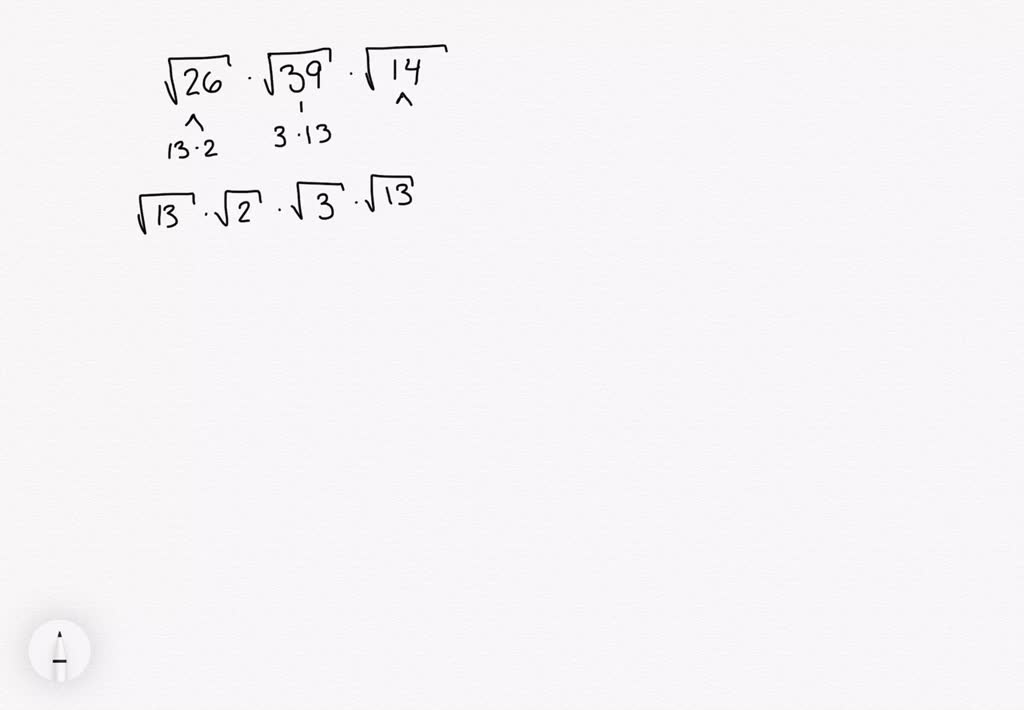 √26 · √39 · √14
13·2 3·13
√13 · √2 · √3 · √13